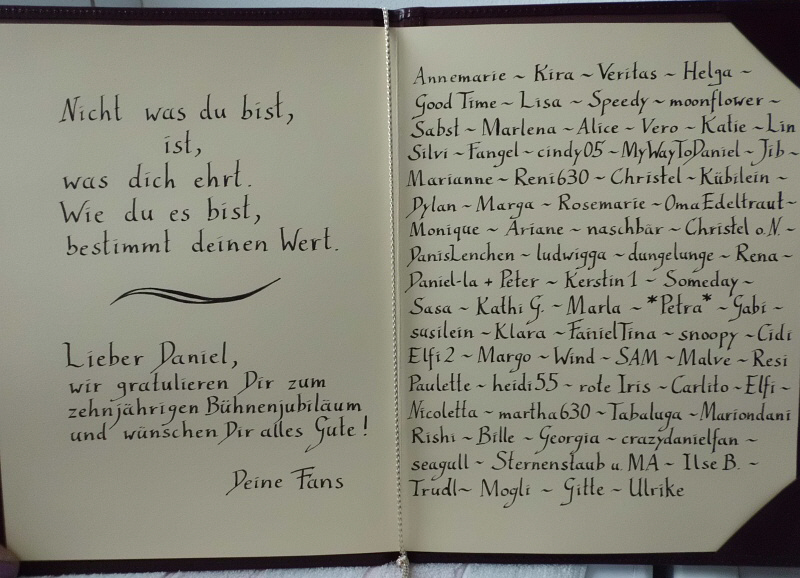 Nicht was du bist,
ist,
was dich ehrt.
Wie du es bist,
bestimmt deinen Wert.
Lieber Daniel,
wir gratulieren Dir zum
zehnjährigen Bühnenjubiläum
und wünschen Dir alles Gute!
Deine Fans
Annemarie ~ Kira ~ Veritas ~ Helga ~
Good Time ~ Lisa ~ Speedy ~ moonflower ~
Sabst ~ Marlena ~ Alice ~ Vero ~ Katie ~ Lin
Silvi ~ Fangel ~ cindy05 ~ MyWayToDaniel ~ Jib ~
Marianne ~ Reni630 ~ Christel ~ Kübilein ~
Dylan ~ Marga ~ Rosemarie ~ Oma Edeltraut ~
Monique ~ Ariane ~ naschbär ~ Christel o.N. ~
DanisLenchen ~ ludwigga ~ dungelunge ~ Rena ~
Daniel-la + Peter ~ Kerstin 1 ~ Someday ~
Sasa ~ Kathi G. ~ Marla ~ *Petra* ~ Gabi ~
susilein ~ Klara ~ FanielTina ~ snoopy ~ Cidi
Elfi 2 ~ Margo ~ Wind ~ SAM ~ Malve ~ Resi
Paulette ~ heidi55 ~ rote Iris ~ Carlito ~ Elfi ~
Nicoletta ~ martha630 ~ Tabaluga ~ Mariondani
Rishi ~ Bille ~ Georgia ~ crazydanielfan ~
seagull ~ Sternenstaub u. MA ~ Ilse B. ~
Trudl ~ Mogli ~ Gitte ~ Ulrike